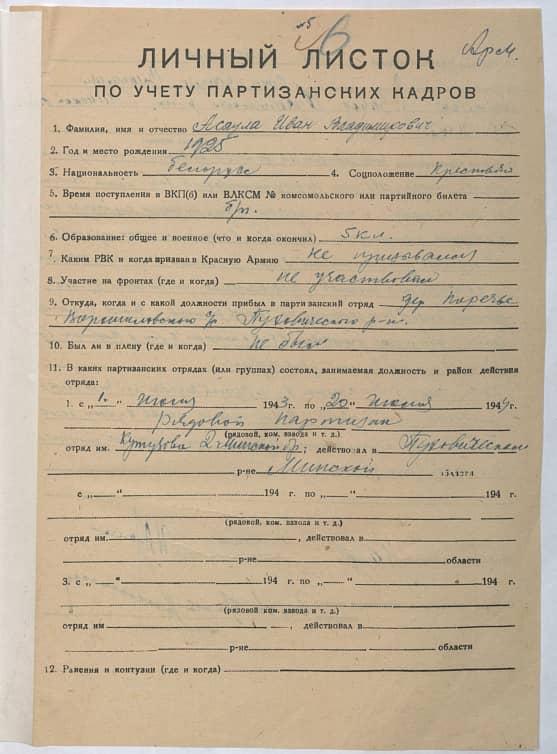 № 6
Арм.
ЛИЧНЫЙ ЛИСТОК
ПО УЧЕТУ ПАРТИЗАНСКИХ КАДРОВ
1. Фамилия, имя и отчество Асаула Иван Владимирович
2. Год и место рождения 1925
3. Национальность белорус 4. Соцположение Крестьян
5. Время поступления в ВКП(б) или ВЛКСМ № комсомольского или партийного билета
б/п.
6. Образование: общее и военное (что и когда окончил) 5 кл.
7. Каким РВК и когда призван в Красную Армию не призывался
8. Участие на фронтах (где и когда) не участвовал
9. Откуда, когда и с какой должности прибыл в партизанский отряд дер Поречье
Пуховического р-н.
10. Был ли в плену (где и когда) не был
11. В каких партизанских отрядах (или группах) состоял, занимаемая должность и район действия
отряда:
1. с „1." июля 1943 г. по „20" июля 1944 г.
рядовой партизан
(рядовой, ком. взвода и т. д.)
отряд им. Кутузова 2 Минской бр; действовал в Пуховическом
р-не Минской области
с „ " 194 г. по „ " 194 г.
(рядовой, ком. взвода и т. д.)
отряд им. , действовал в
р-не области
3. с „ " 194 г. по „ " 194 г.
(рядовой, ком. взвода и т. д.)
отряд им , действовал в
р-не области
12. Ранения и контузии (где и когда)